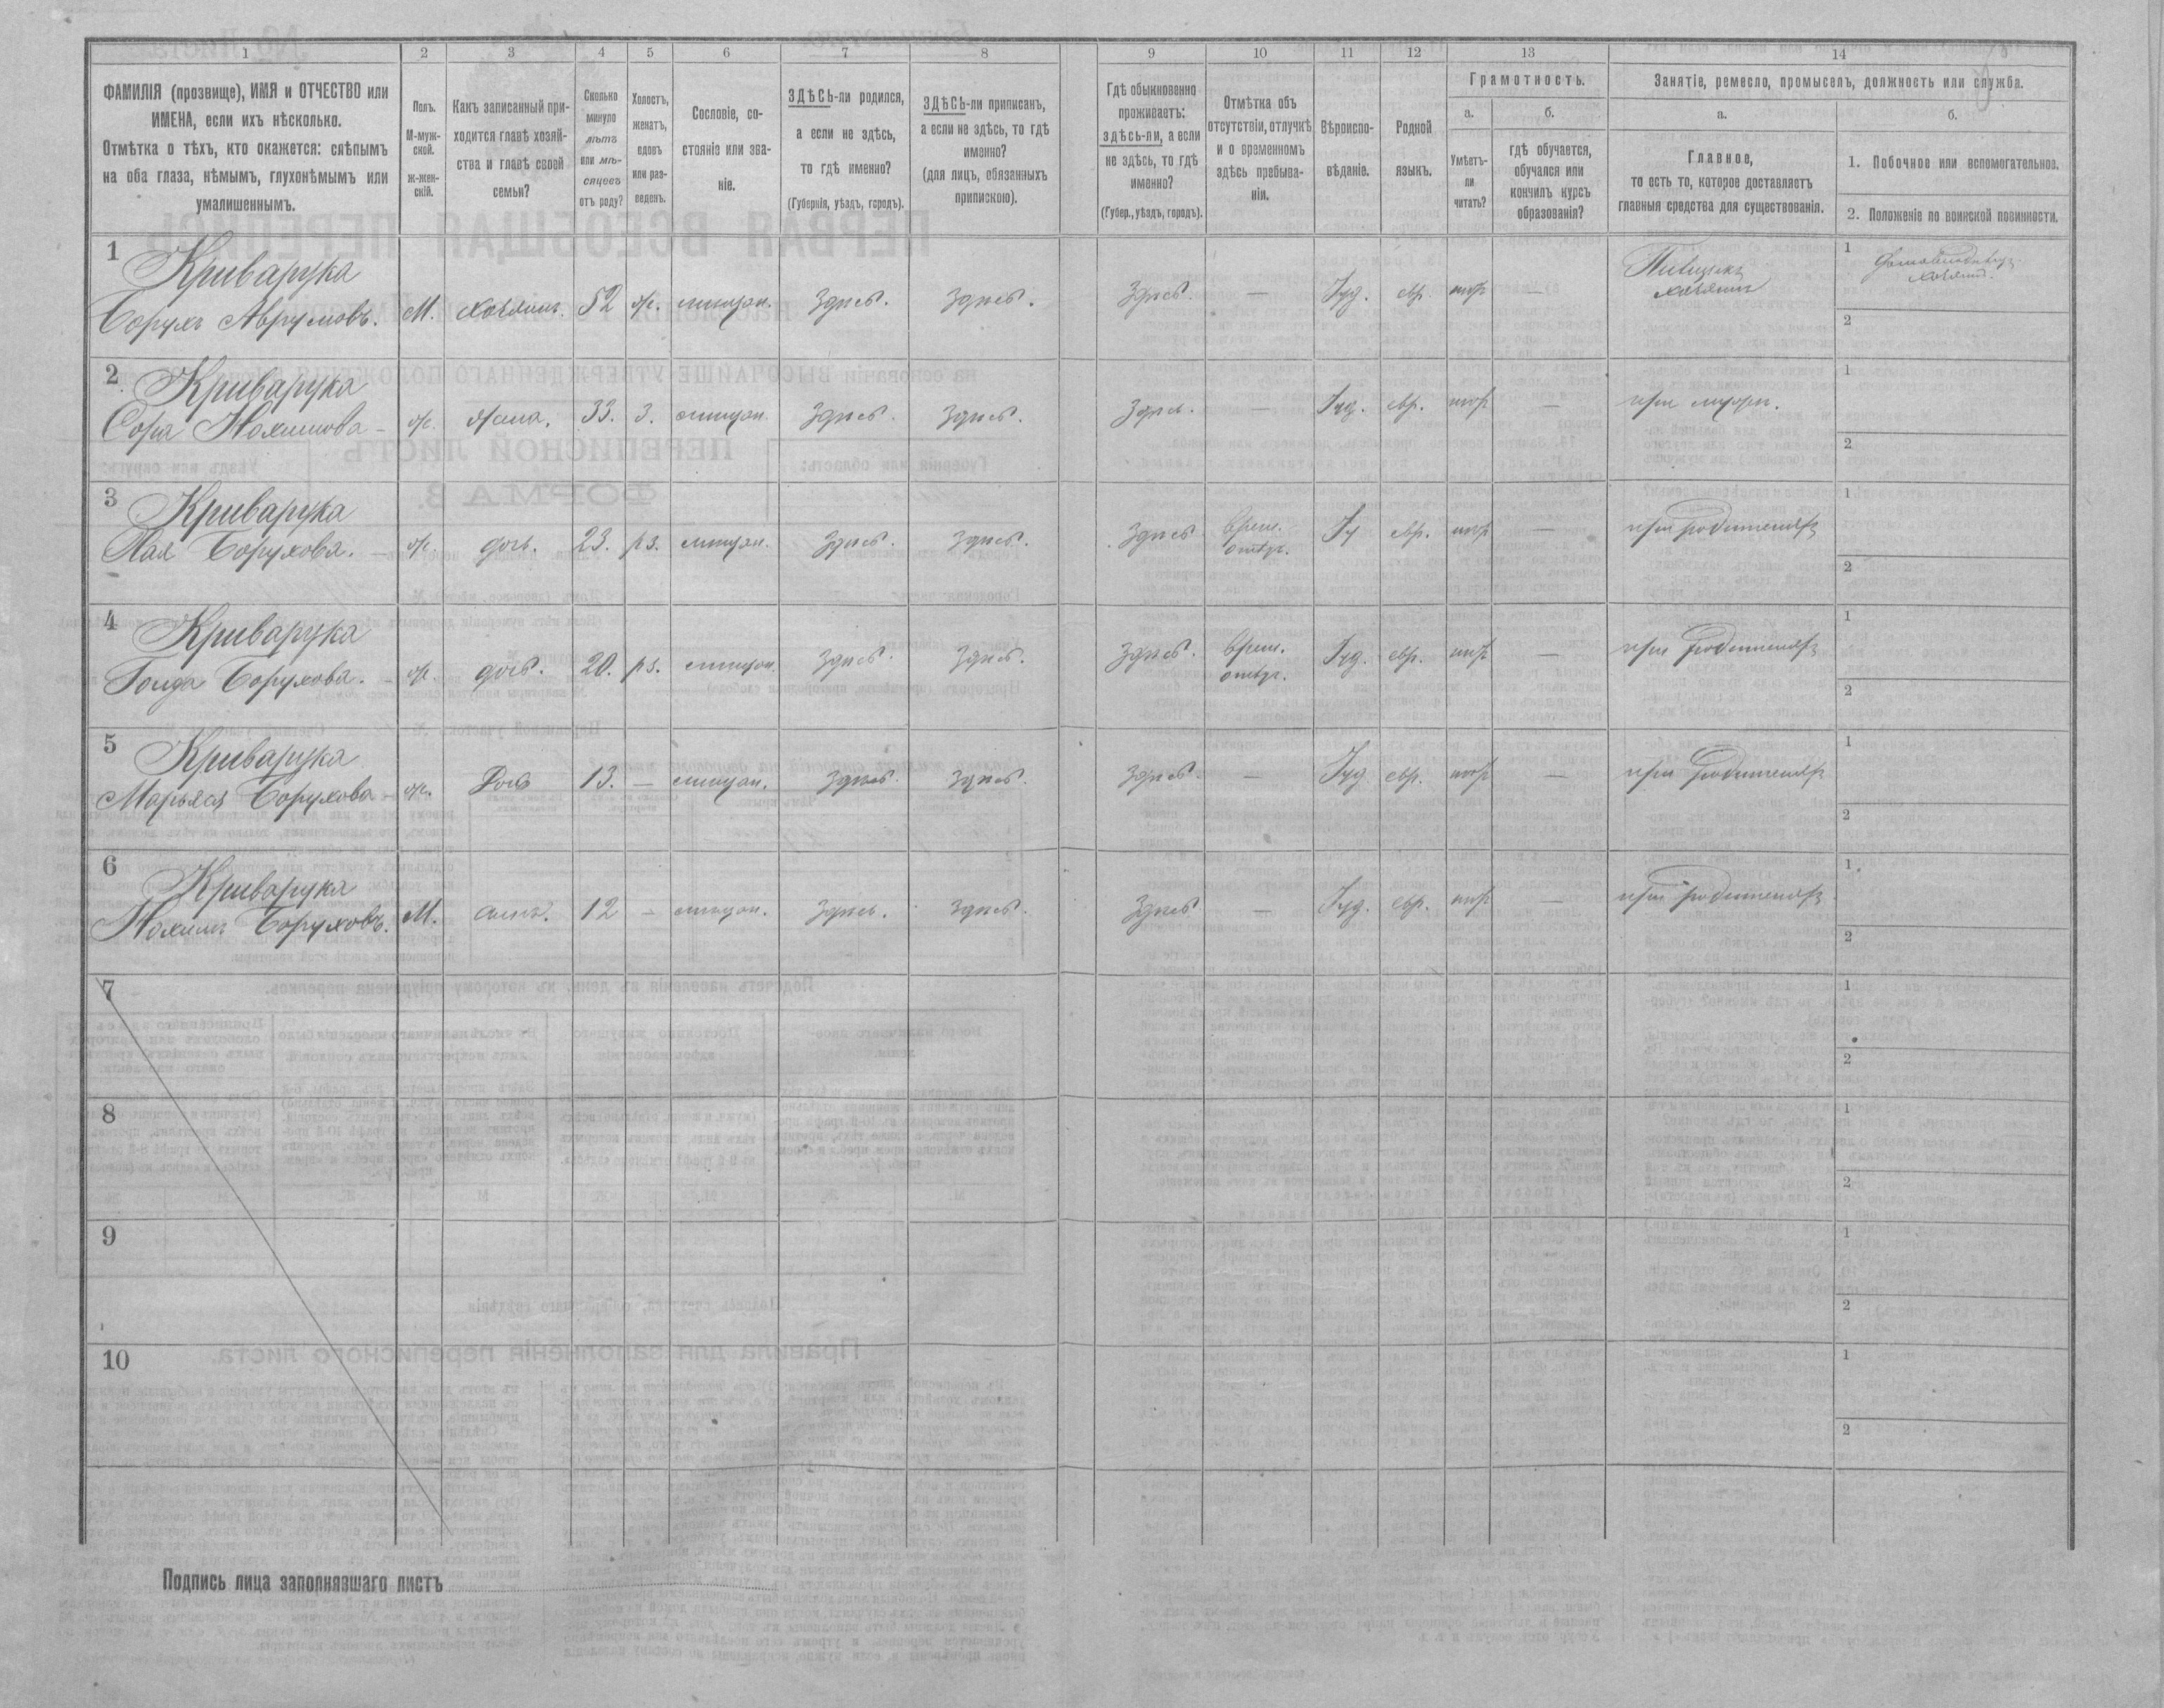 1 2 3 4 5 6 7 8 9 10 11 12 13 14
ФАМИЛІЯ (прозвище), ИМЯ и ОТЧЕСТВО или
ИМЕНА, если ихъ нѣсколько.
Отмѣтка о тѣхъ, кто окажется: слѣпымъ
на оба глаза, нѣмымъ, глухонѣмымъ или
умалишеннымъ.
Полъ.
М-муж-
ской.
ж-жен-
скій.
Какъ записанный при-
ходится главѣ хозяй-
ства и главѣ своей
семьи?
Сколько
минуло
лѣтъ
или мѣ-
сяцевъ
отъ роду?
Холостъ,
женатъ,
вдовъ
или раз-
веденъ.
Сословіе, со-
стояніе или зва-
ніе.
ЗДѢСЬ-ли родился,
а если не здѣсь,
то гдѣ именно?
(Губернія, уѣздъ, городъ).
ЗДѢСЬ-ли приписанъ,
а если не здѣсь, то гдѣ
именно?
(для лицъ, обязанныхъ
припискою).
Гдѣ обыкновенно
проживаетъ:
здѣсь-ли, а если
не здѣсь, то гдѣ
именно?
(Губер., уѣздъ, городъ).
Отмѣтка объ
отсутствіи, отлучкѣ
и о временномъ
здѣсь пребыва-
ніи.
Вѣроиспо-
вѣданіе.
Родной
языкъ.
Грамотность.
а. б.
Умѣетъ-
ли
читать?
гдѣ обучается,
обучался или
кончилъ курсъ
образованія?
Занятіе, ремесло, промыселъ, должность или служба.
а. б.
Главное,
то есть то, которое доставляетъ
главныя средства для существованія.
1. Побочное или вспомогательное.
2. Положеніе по воинской повинности.
1 Криварука
Борухъ Аврумовъ. М. хозяинъ. 52 ж. мищан. Здись. Здись. Здись. — Іуд. евр. нигр —
хозяинъ
1
хозяинъ.
2
2 Криварука
Сора Нахимова - ж. жена. 33. З. мищан. Здись. Здись. Здись. — Іуд. евр. нигр — при мужи.
1
2
3 Криварука
Хая Борухова. — ж. дочь. 23. рз. мищан. Здись. Здись. Здись врем. отлуч. Іу евр. нигр — при родителяхъ
1
2
4 Криварука
Голда Борухова. - ж. дочь. 20. рз. мищан. Здись. Здись. Здись. врем. отлуч. Іуд. евр. нигр — при родителяхъ
1
2
5 Криварука
Марьяся Борухова - ж. Дочь 13. — мищан. Здись. Здись. Здись. — Іуд. евр. нигр — при родителяхъ
1
2
6 Криварука
Нахимъ Боруховъ. М. сынъ. 12 — мищан. Здись. Здись. Здись — Іуд. евр. нигр — при родителяхъ.
1
2
7
1
2
8
1
2
9
1
2
10
1
2
Подпись лица заполнявшаго листъ